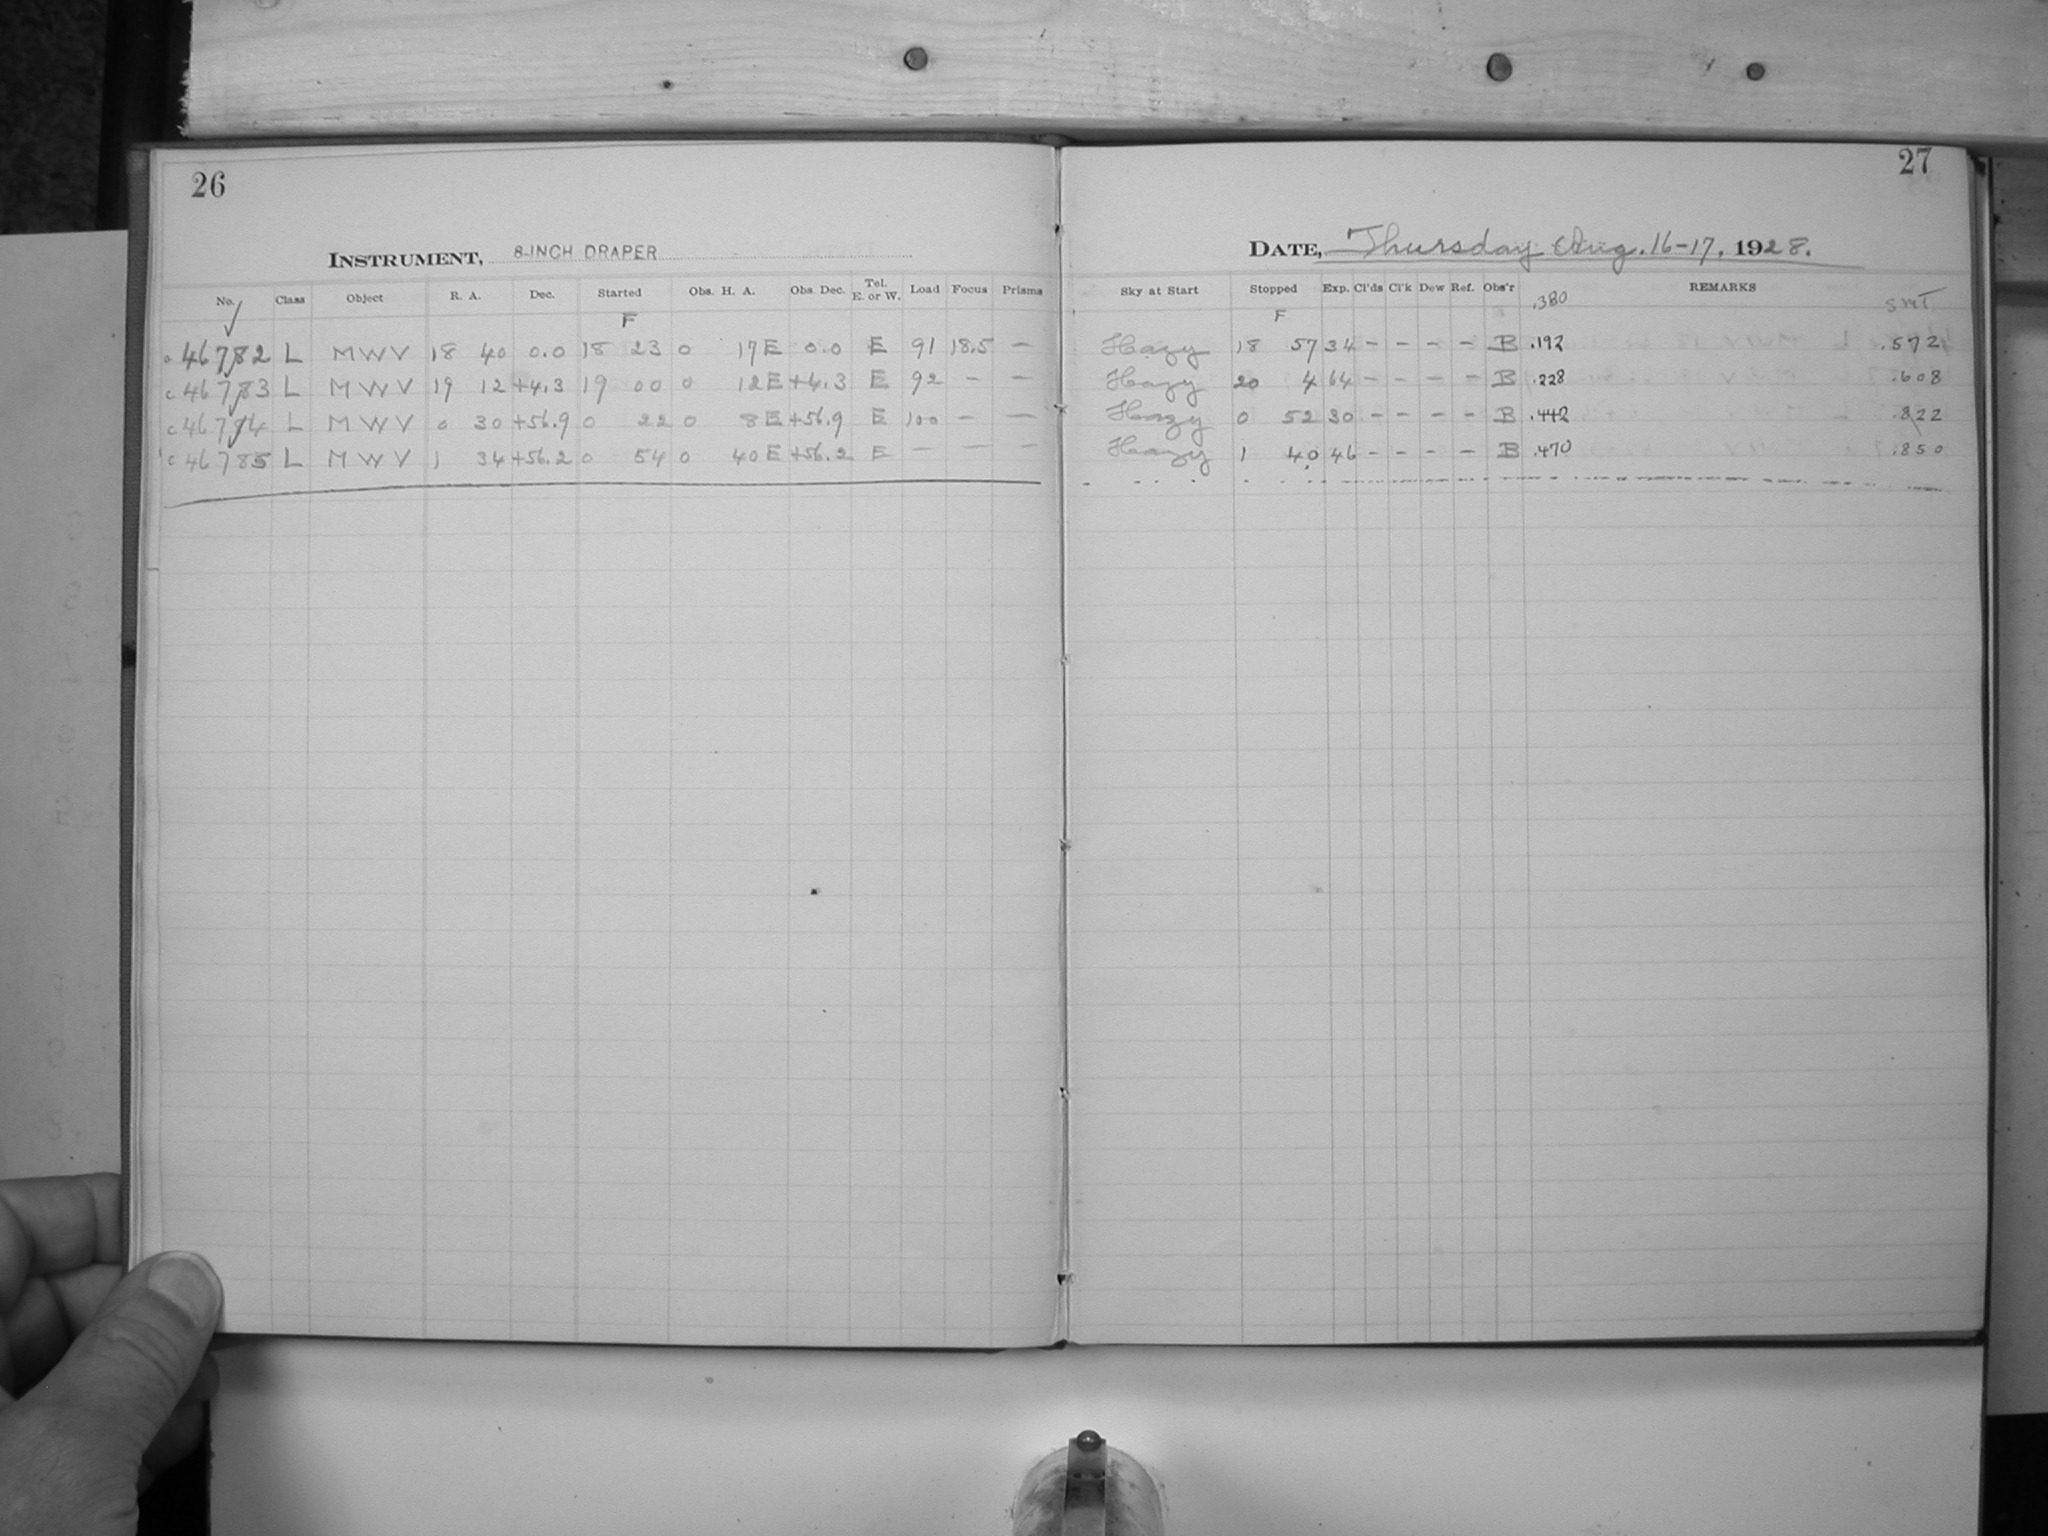 26
INSTRUMENT, 8-INCH DRAPER
No. Class Object R. A. Dec. Started Obs. H. A. Obs. Dec. Tel. E. or W. Load Focus Prisms
F
46782 L MWV 18 40 0.0 18 23 0 17 E 0.0 E 91 18.5 —
c 46783 L MWV 19 12 +4.3 19 00 0 12 E +4.3 E 92 — —
c 46784 L MWV 0 30 +56.9 0 22 0 8 E +56.9 E 100 — —
c 46785 L MWV 1 34 +56.2 0 54 0 40 E +56.2 E — — —
27
DATE, Thursday Aug. 16-17, 1928.
Sky at Start Stopped Exp. Cl'ds Cl'k Dew Ref. Obs'r REMARKS
F .380 GMT
Hazy 18 57 34 - - - - B .192 .572
Hazy 20 4 64 - - - - B .228 .608
Hazy 0 52 30 - - - - B .442 .822
Hazy 1 40 46 - - - - B .470 .850